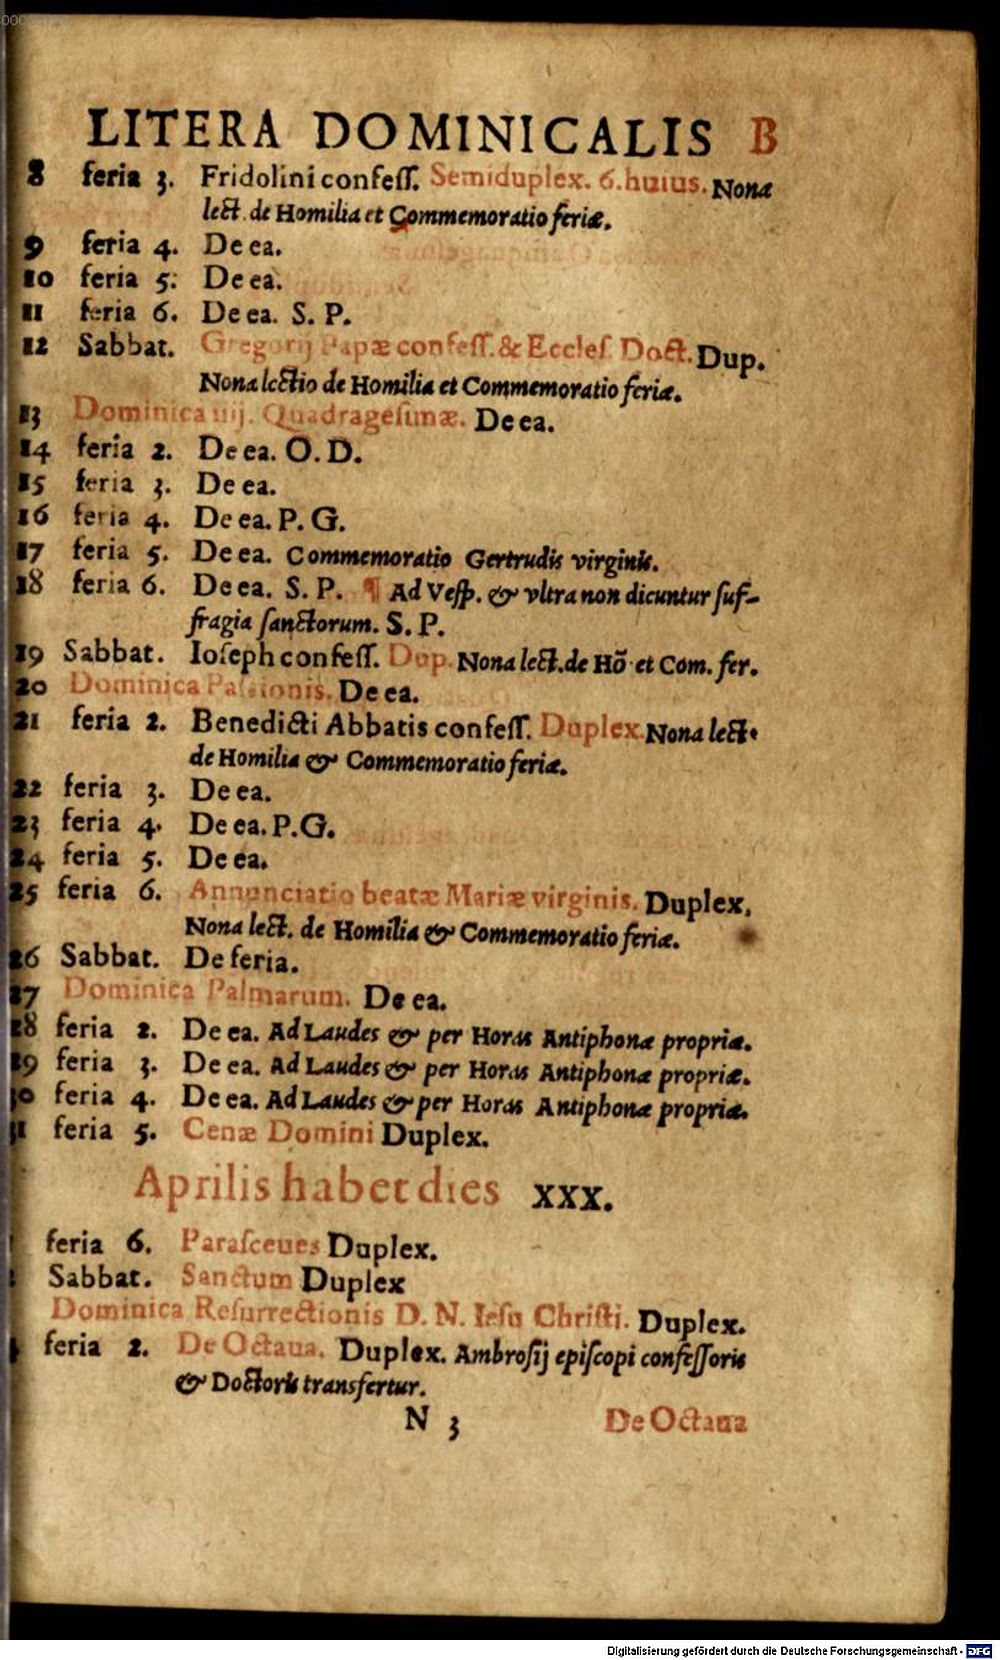 LITERA DOMINICALIS B
8 feria 3. Fridolini confeſſ. Semiduplex. 6. huius. Nona
lect. de Homilia et Commemoratio feriæ.
9 feria 4. De ea.
10 feria 5. De ea.
11 feria 6. De ea. S. P.
12 Sabbat. Gregorij Papæ confeſſ. & Eccleſ. Doct. Dup.
Nona lectio de Homilia et Commemoratio feriæ.
13 Dominica iiij. Quadrageſimæ. De ea.
14 feria 2. De ea. O. D.
15 feria 3. De ea.
16 feria 4. De ea. P. G.
17 feria 5. De ea. Commemoratio Gertrudis virginis.
18 feria 6. De ea. S. P. ¶ Ad Veſp. & vltra non dicuntur ſuf-
fragia ſanctorum. S. P.
19 Sabbat. Ioſeph confeſſ. Dup. Nona lect. de Hō et Com. fer.
20 Dominica Paſsionis. De ea.
21 feria 2. Benedicti Abbatis confeſſ. Duplex. Nona lect.
de Homilia & Commemoratio feriæ.
22 feria 3. De ea.
23 feria 4. De ea. P. G.
24 feria 5. De ea.
25 feria 6. Annunciatio beatæ Mariæ virginis. Duplex.
Nona lect. de Homilia & Commemoratio feriæ.
26 Sabbat. De feria.
27 Dominica Palmarum. De ea.
28 feria 2. De ea. Ad Laudes & per Horas Antiphonæ propriæ.
29 feria 3. De ea. Ad Laudes & per Horas Antiphonæ propriæ.
30 feria 4. De ea. Ad Laudes & per Horas Antiphonæ propriæ.
31 feria 5. Cenæ Domini Duplex.
Aprilis habet dies XXX.
feria 6. Paraſceues Duplex.
Sabbat. Sanctum Duplex
Dominica Reſurrectionis D. N. Ieſu Chriſti. Duplex.
feria 2. De Octaua. Duplex. Ambroſij epiſcopi confeſſoris
& Doctoris transfertur.
N 3 De Octaua
Digitalisierung gefördert durch die Deutsche Forschungsgemeinschaft - DFG